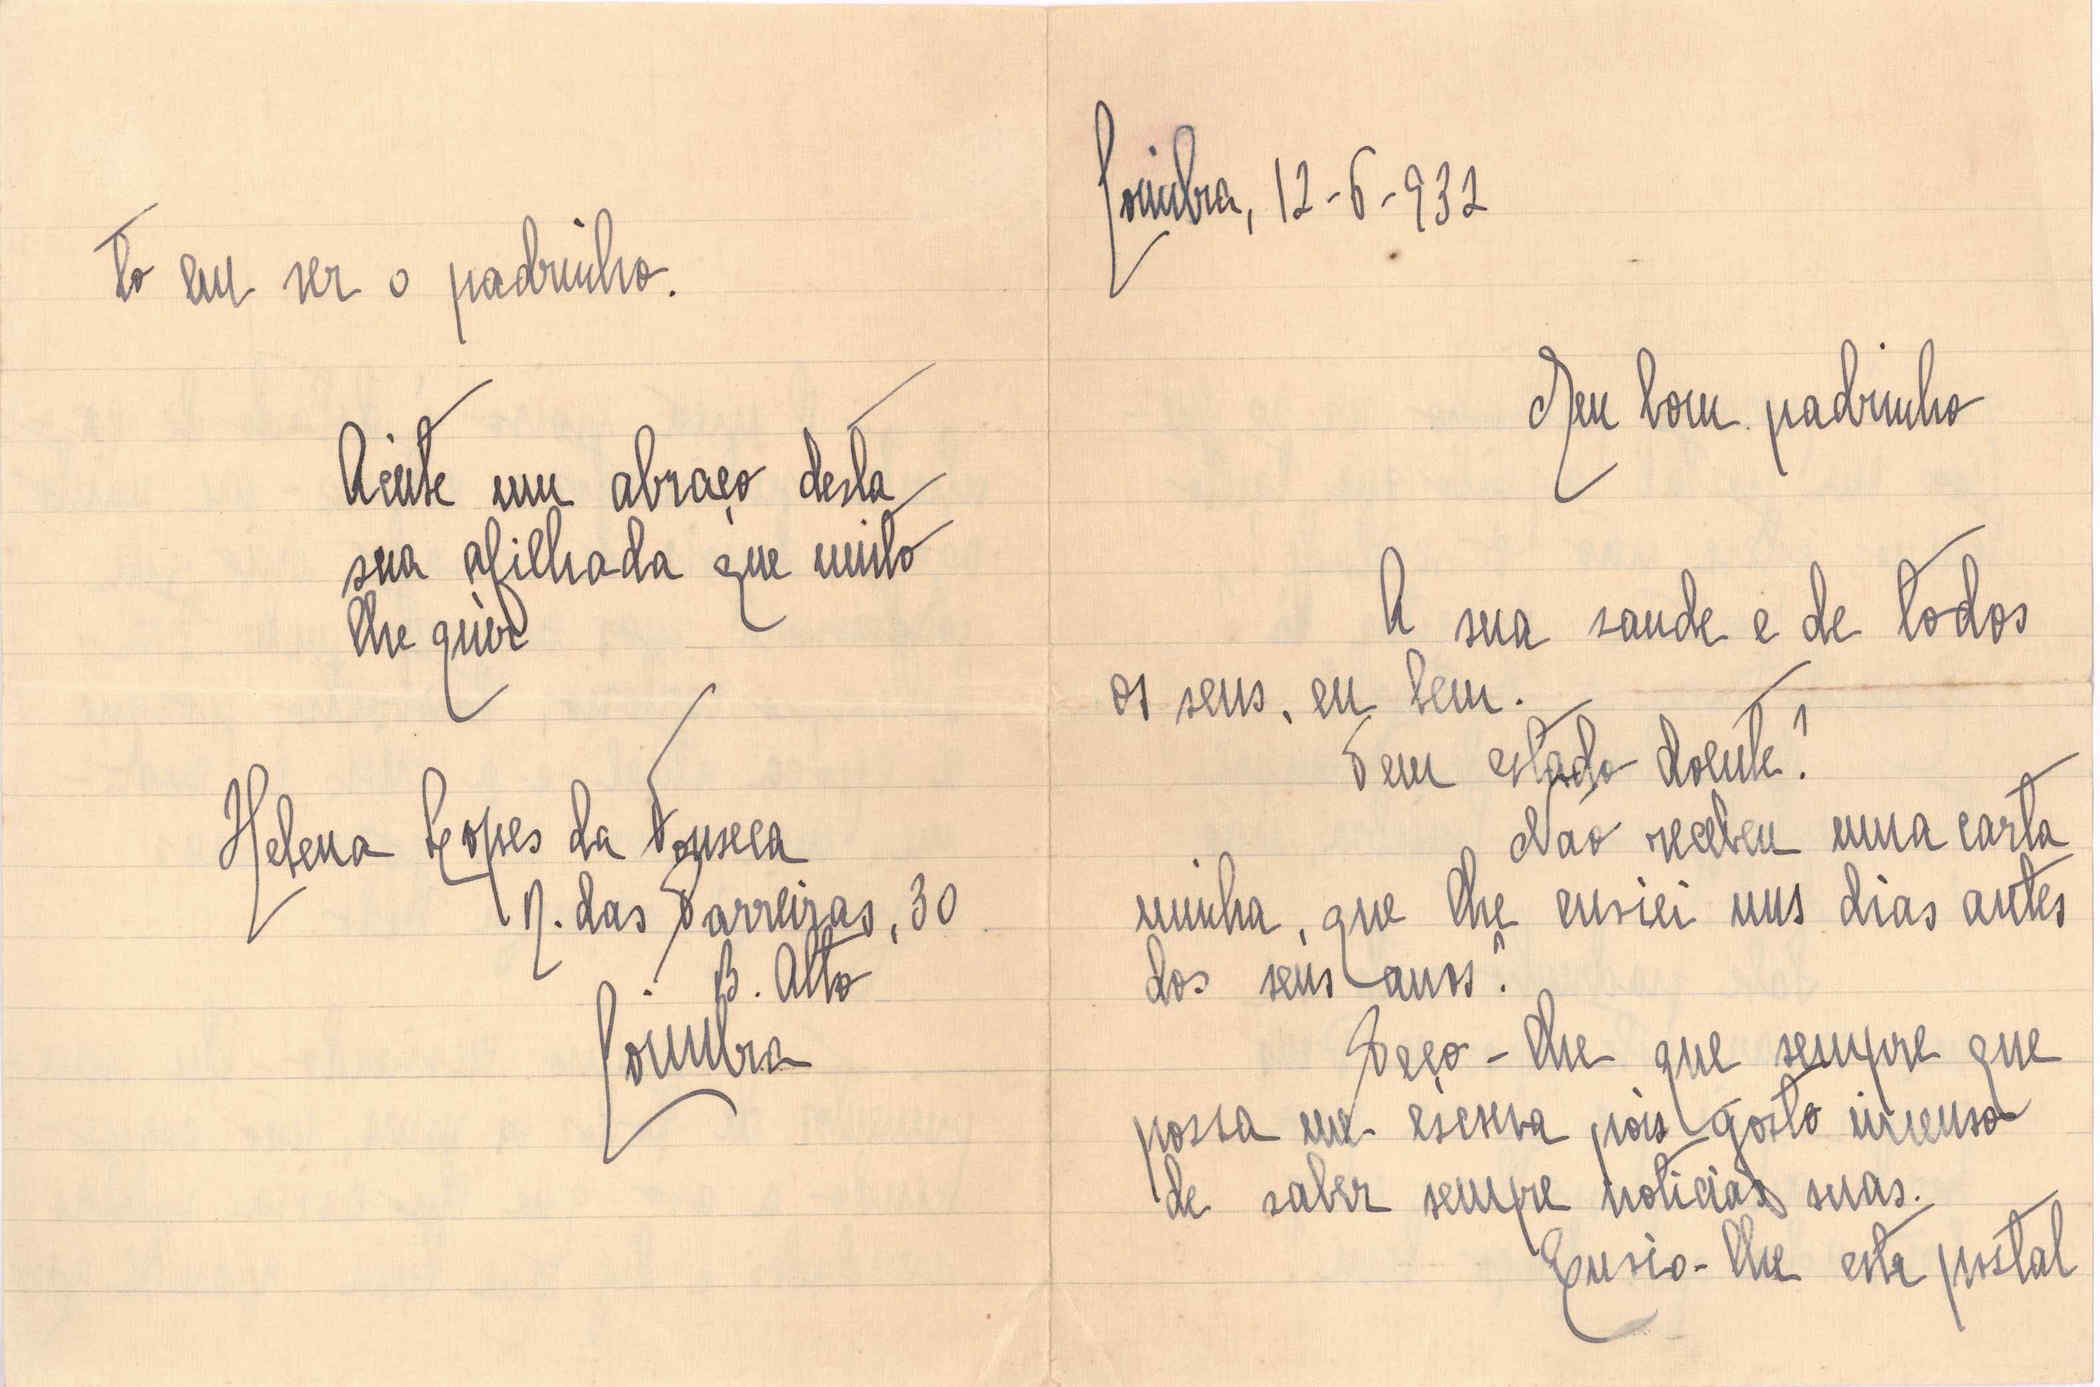 Coimbra, 12-6-932
Meu bom padrinho
A sua saude e de todos
os seus, eu bem.
Tem estado doente?
Não recebeu uma carta
minha, que lhe enviei uns dias antes
dos seus anos?
Peço-lhe que sempre que
possa me escreva pois gosto imenso
de saber sempre noticias suas.
Envio-lhe este postal
to em ser o padrinho.
Aceite um abraço desta
sua afilhada que muito
lhe quér
Helena Lopes da Fonseca
R. das Parreiras, 30
B. Alto
Coimbra